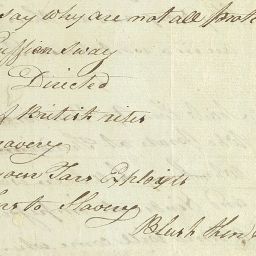 say why are not all prote
Ruffian Sway
Directed
of British rites
navery
your Tars Exploits
ans to Slavery
Blush then